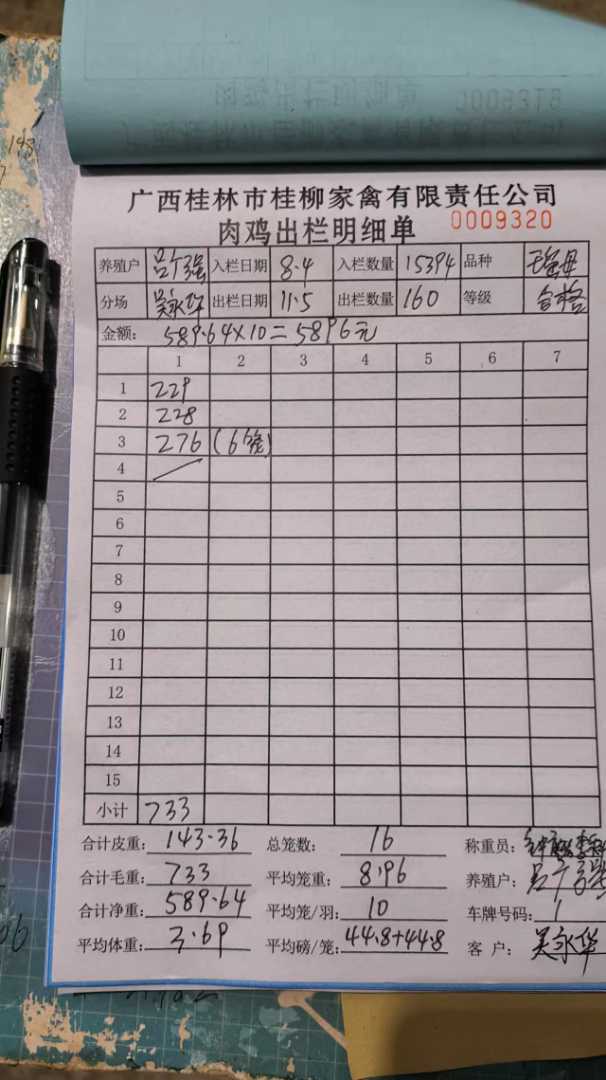 广西桂林市桂柳家禽有限责任公司
肉鸡出栏明细单 0009320
养殖户 吕广强 入栏日期 8.4 入栏数量 15394 品种
分场 吴永华 出栏日期 11.5 出栏数量 160 等级 合格
金额: 589.64×10=5896元
1 2 3 4 5 6 7
1 229
2 228
3 276 (6笼)
4
5
6
7
8
9
10
11
12
13
14
15
小计 733
合计皮重: 143.36 总笼数: 16 称重员:
合计毛重: 733 平均笼重: 8.96 养殖户: 吕广强
合计净重: 589.64 平均笼/羽: 10 车牌号码: 1
平均体重: 3.69 平均磅/笼: 44.8+44.8 客 户: 吴永华